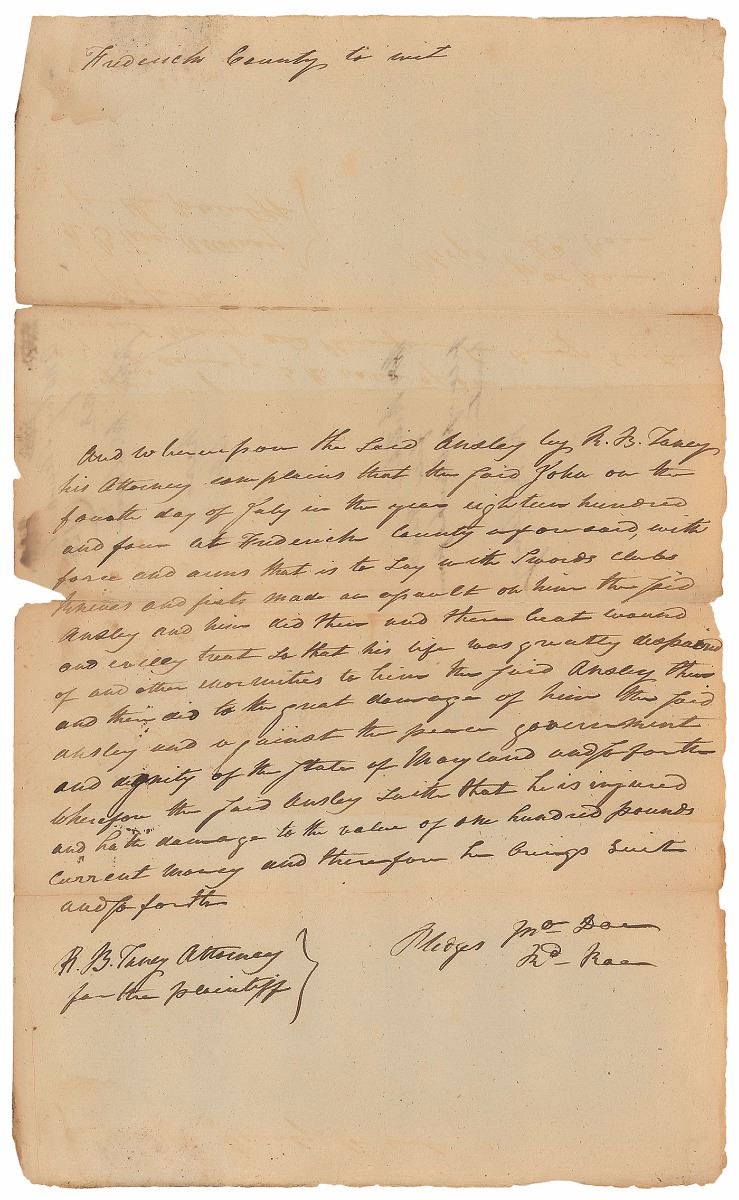 Frederick County to wit
And whereupon the Said Ansley by R. B. Taney
his Attorney complains that the Said John on the
fourth day of July in the year eighteen hundred
and four at Frederick County aforesaid, with
force and arms that is to Say with Swords clubs
knives and fists made an assault on him the Said
Ansley and him did then and there beat wound
and evilly treat So that his life was greatly despaired
of and other enormities to him the Said Ansley then
and there did to the great damage of him the Said
Ansley and against the peace government
and dignity of the State of Maryland and so forth
Wherefore the Said Ansley Saith that he is injured
and hath damage to the value of one hundred pounds
current money and therefore he brings Suit
and so forth
R. B. Taney Attorney
for the plaintiff
Pledges Jno Doe
Rd Roe